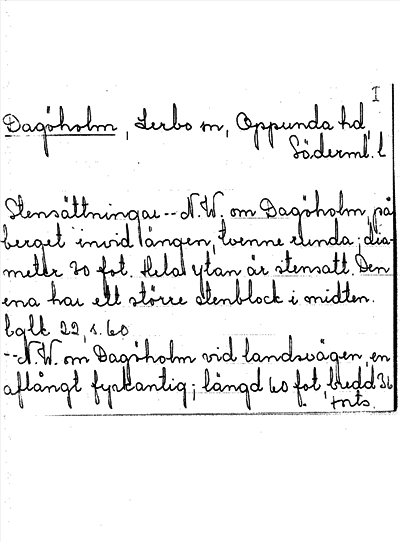 I
Dagöholm, Lerbo sn, Oppunda hd,
Söderml. l
Stensättningar -- N.W. om Dagöholm, på
berget invid ängen, tvenne runda; dia-
meter 20 fot. Hela ytan är stensatt. Den
ena har ett större stenblock i midten.
bglk 22, s. 60
-- N.W. om Dagöholm vid landsvägen, en
aflångt fyrkantig; längd 60 fot bredd 36
forts.